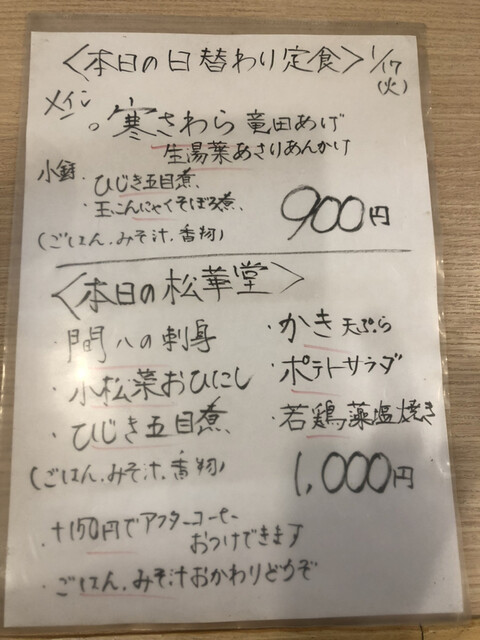 〈本日の日替わり定食〉 1/17(火)
メイン。寒さわら竜田あげ
生湯葉あさりあんかけ
小鉢・ひじき五目煮、
・玉こんにゃくそぼろ煮、
900円
(ごはん.みそ汁.香物)
〈本日の松華堂〉
・間八の刺身
・かき天ぷら
・小松菜おひにし
・ポテトサラダ
・ひじき五目煮、
・若鶏藻塩焼き
(ごはん.みそ汁.香物)
1,000円
・+150円でアフターコーヒー
おつけできます
・ごはん.みそ汁おかわりどうぞ